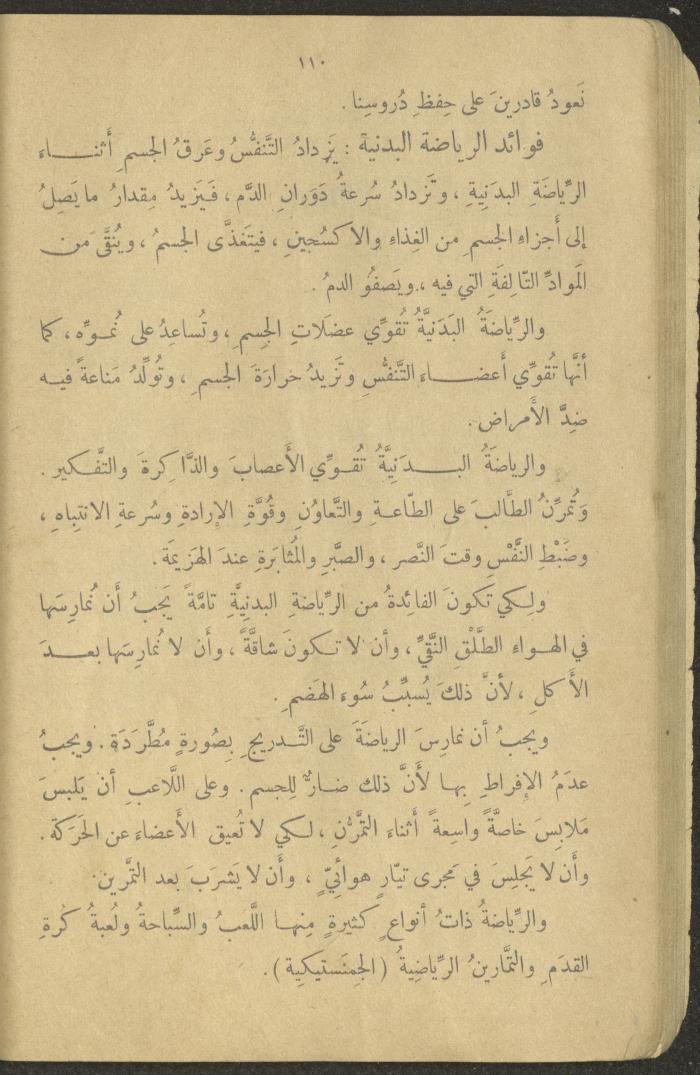 ١١٠
نَعودُ قادرينَ على حِفظِ دُروسِنا .
فوائد الرياضة البدنية : يَزدادُ التَّنفُّسُ وعَرقُ الجسمِ أَثنـــاء
الرِّياضَةِ البدَنِيةِ ، وتَزدادُ سُرعةُ دَوَرانِ الدَّم ، فَيَزيدُ مِقدارُ ما يَصِلُ
إلى أَجزاءِ الجسمِ من الغِذاءِ والاكسُجينِ ، فيتَغذَّى الجسمُ ، ويُنقَّى مَن
المَوادِّ التّالِفَةِ التي فيه ، ويَصفُو الدمُ .
والرِّياضَةُ البَدَنيَّةُ تُقوِّي عضَلاتِ الجِسمِ ، وتُساعِدُ على نُمـوِّه ، كما
أنَّها تُقوِّي أَعضـــاء التَّنفُّسِ وتَزيدُ حرارَةَ الجسمِ ، وتُولِّدُ مَناعةً فيـه
ضِدَّ الأَمراض .
والرياضَةُ البـــدَنِيَّةُ تُقـوِّي الأَعصابَ والذَّاكِرةَ والتَّفـكير .
وَتُمرِّنُ الطَّالبَ على الطّاعـةِ والتَّعاوُنِ وقُوَّةِ الإرادةِ وسُرعةِ الانتِباهِ ،
وضَبْطِ النَّفْسِ وقتَ النَّصر ، والصَّبْرِ والمُثابَرةِ عندَ الهَزيمَة .
ولِـكي تَكونَ الفائِدةُ من الرِّياضةِ البدنيَّةِ تامَّةً يَجبُ أَن نُمارِسَها
في الهـواءِ الطَّلْقِ النَّقيِّ ، وأن لا تـكونَ شاقَّةً ، وأَن لا نُمارِسَها بعـدَ
الأَكلِ ، لأنَّ ذلكَ يُسبِّبُ سُوءَ الهَضمِ .
ويجبُ أن نمارِسَ الرياضَةَ على التَّـدريجِ بِصُورةٍ مُطَّرَدَةٍ . ويجبُ
عدَمُ الإفراطِ بِهـا لأَنَّ ذلك ضارٌّ لِلجسم . وعلى اللَّاعبِ أنْ يَلبسَ
مَلابِسَ خاصَّةً واسِعةً أَثناءَ التمَّرُنِ ، لـكي لا تُعيق الأَعضاء عن الحَرَكة .
وأَن لا يَجلِسَ في مَجرى تيّارٍ هوائيٍّ ، وأَن لا يَشرَبَ بعد التمَّرين .
والرِّياضةُ ذاتُ أنواعٍ كثيرةٍ مِنهـا اللَّعبُ والسِّباحةُ ولُعبةُ كُرةِ
القدَمِ والتمَّارينُ الرِّياضِيةُ (الجِمنَستيكِية) .